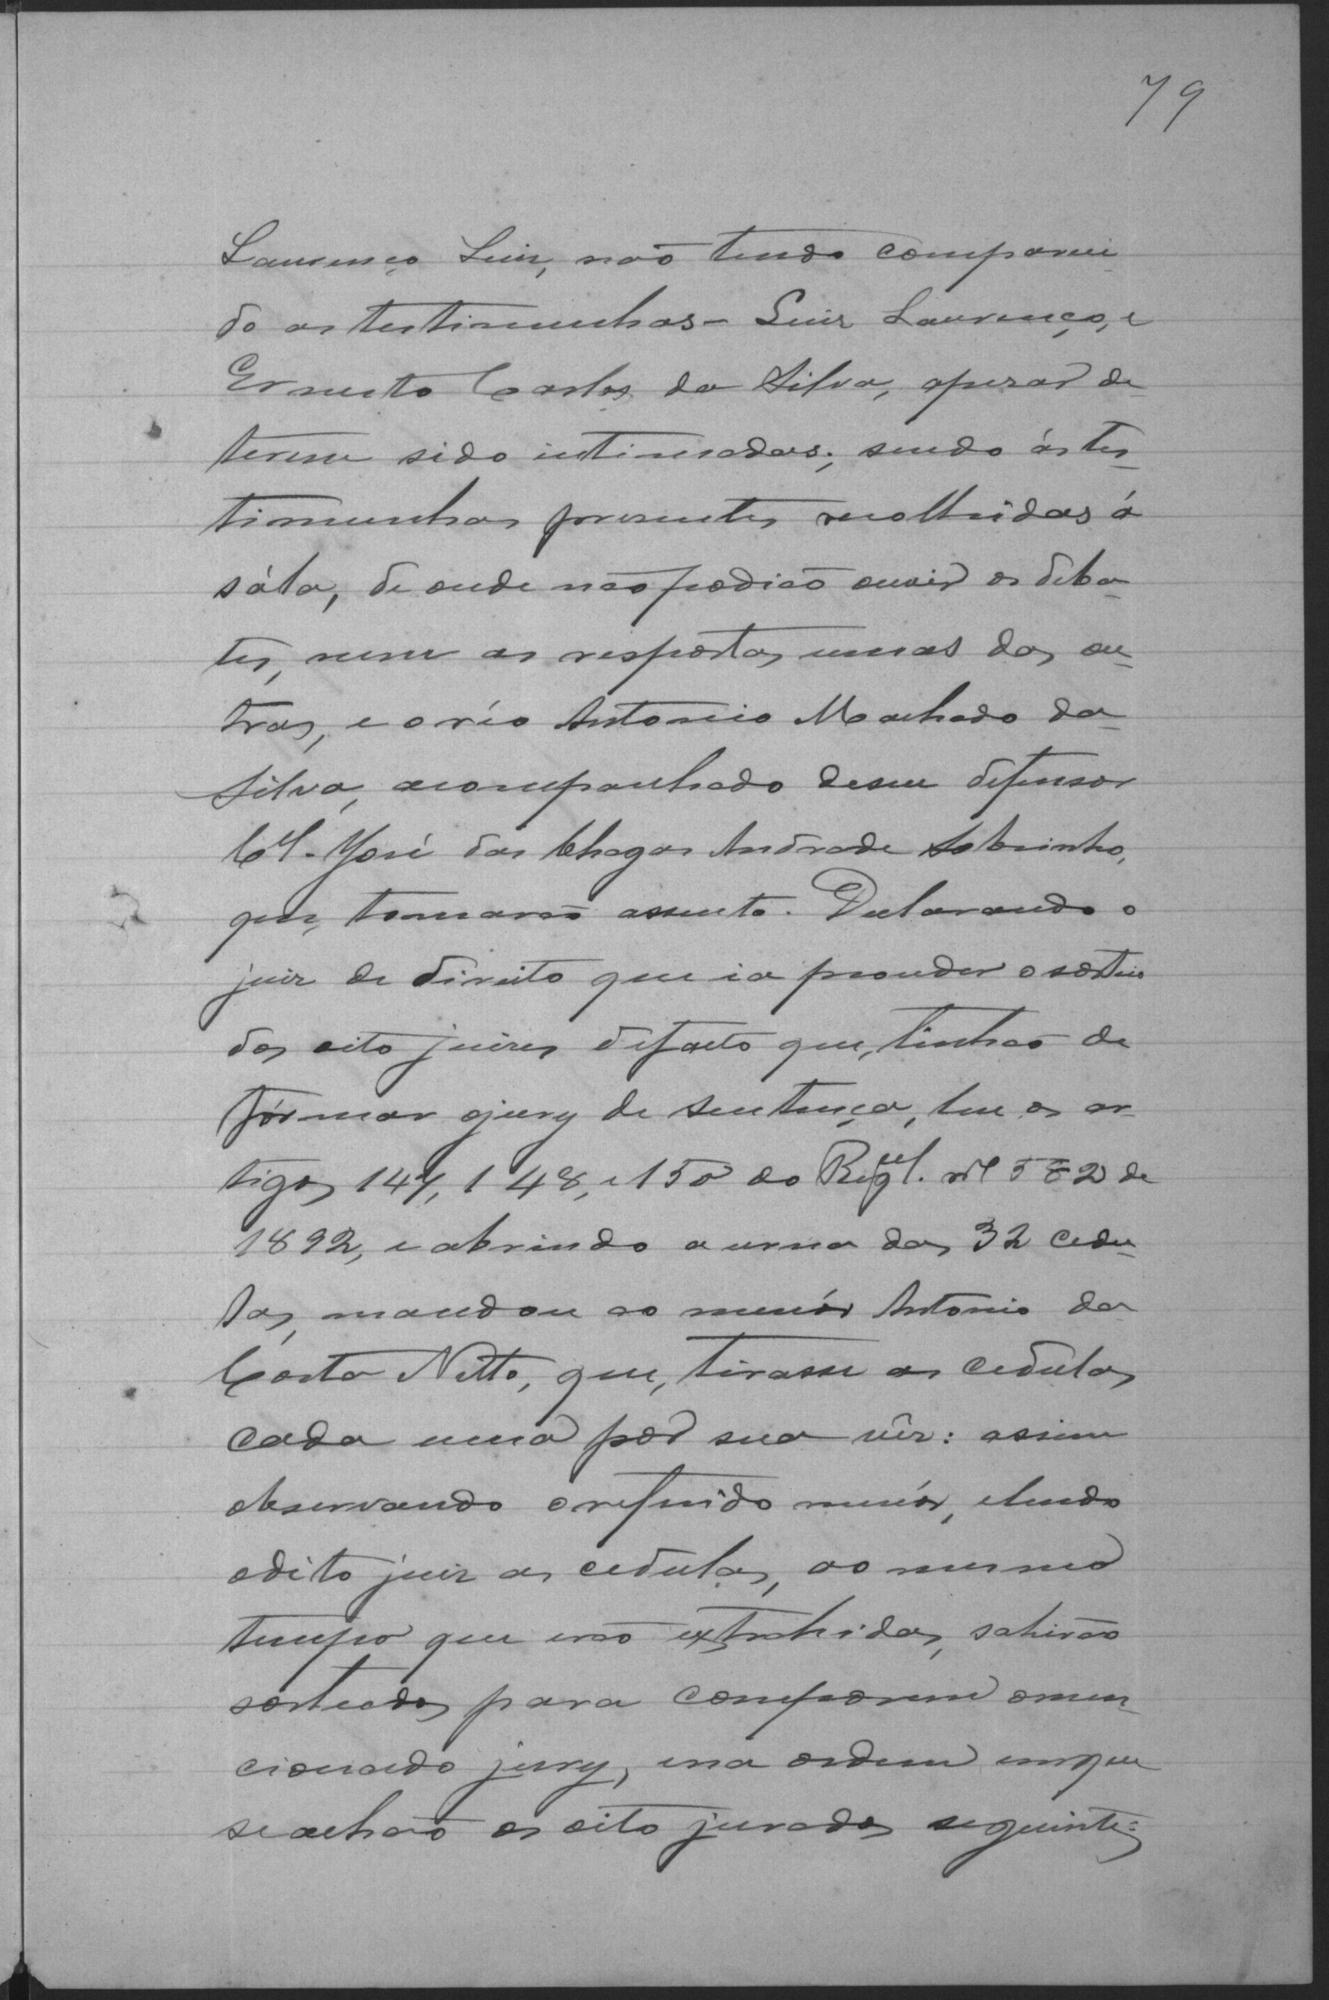 79
Laurenço Luiz, não tendo compareci
do as testimunhas - Luiz Laurenço, e
Ernesto Carlos da Silva, apezar de
terem sido intimadas; sendo ás tes-
timunhas presentes recolhidas á
sála, de onde não podião ouvir os deba-
tes, nem as respostas umas das ou-
tras, e o réo Antonio Machado da
Silva, acompanhado de seu defensor
Cel. José das Chagas Andrade Sobrinho,
que, tomarão assento. Declarando o
juiz de direito que ia proceder o sorteio
dos oito juizes de facto que, tinhão de
fórmar o jury de sentença, leu os ar-
tigos 147, 148, e 150 do Regul. nº 582 de
1892, e abrindo a urna das 32 cedu-
las, mandou ao menór Antonio da
Costa Netto, que, tirasse as cedulas
cada uma por sua vêz: assim
observando o referido menór, e lendo
o dito juiz as cedulas, ao mesmo
tempo que erão extrahidas, sahirão
sorteados para comporem o men-
cionado jury, e na ordem em que
se achão os oito jurados seguintes: